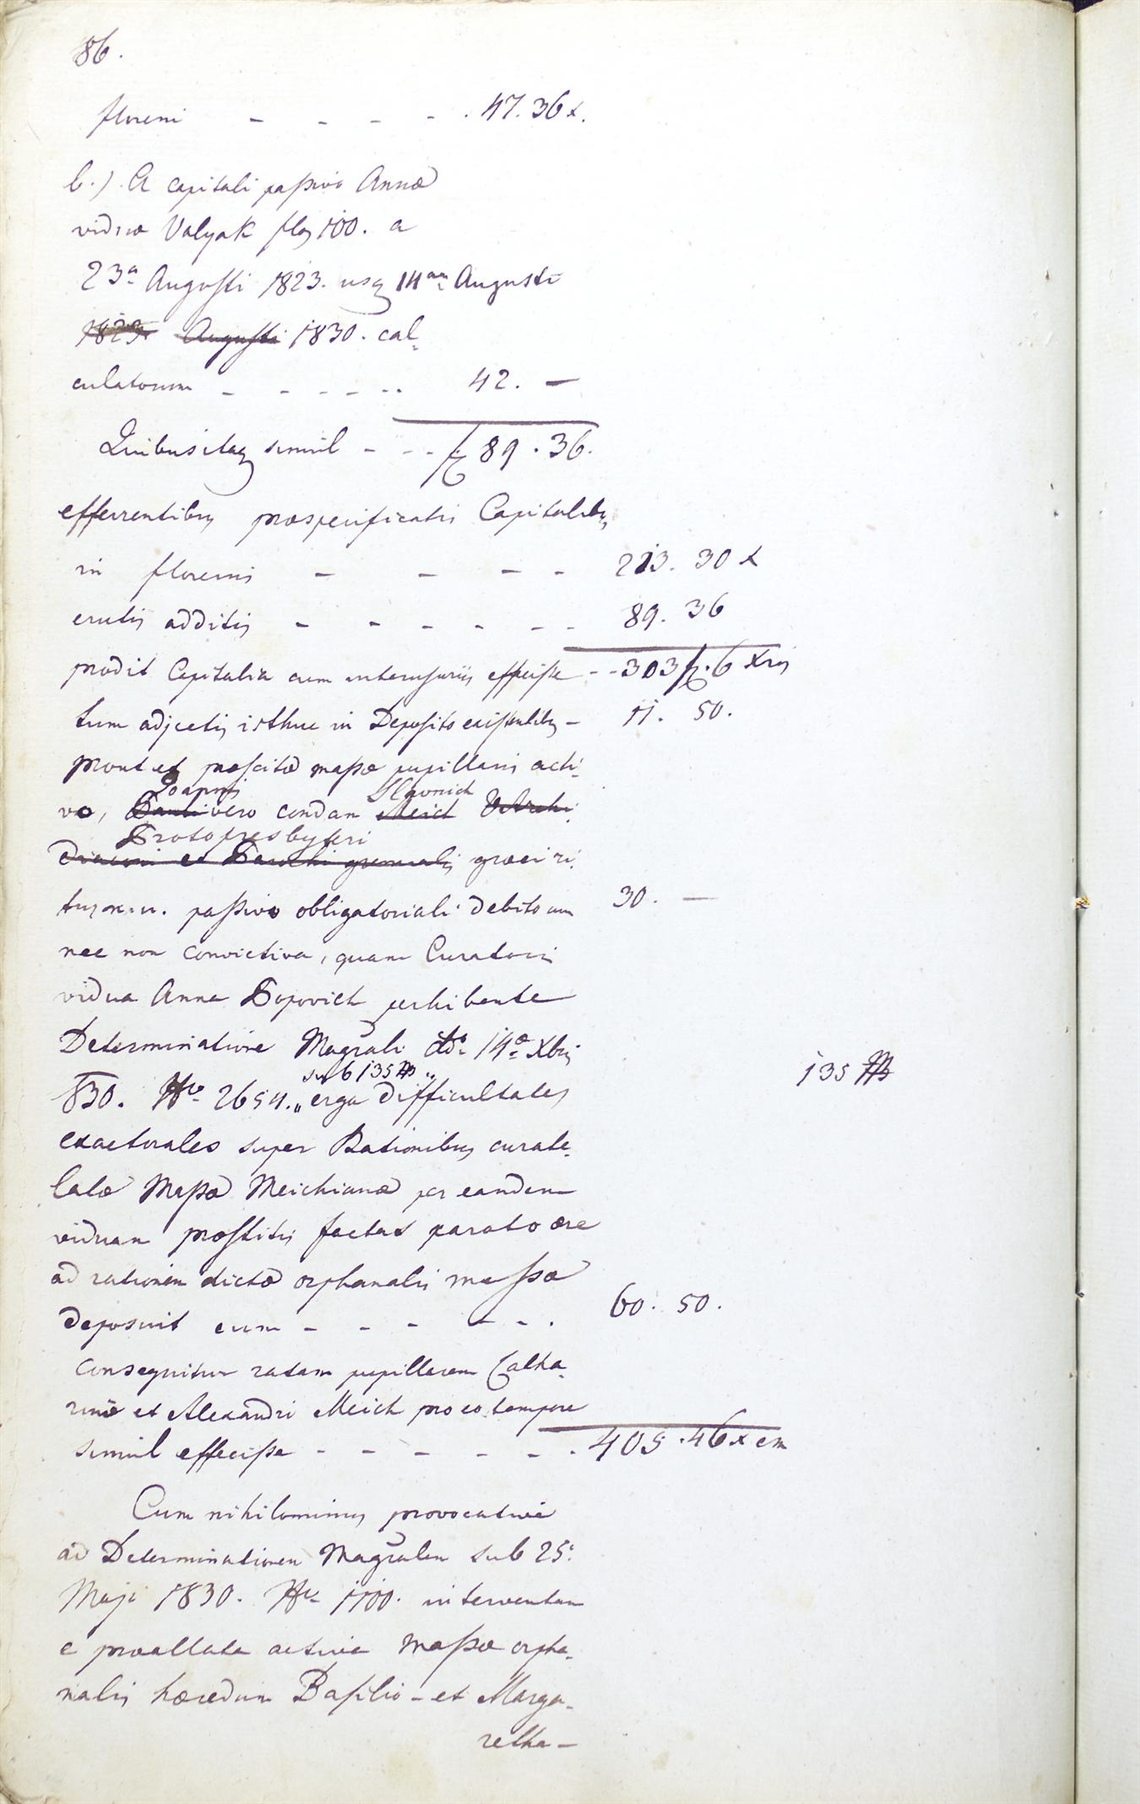 86.
floreni - - - - . 47. 36 x.
b.) A capitali passivo Annæ
viduæ Valyak flor 100. a
23a Augusti 1823. usq 14am Augusti
1823 Augusti 1830. cal-
culatorum - - - - - .. 42. —
Quibus itaq simul - - - f 89. 36.
efferentibus præspecificatis Capitalibus
in florenis - - - - 213. 30 x
erutis additis - - - - - - 89. 36
prodit Capitalia cum interusuriis effecisse - - 303 f. 6 xris
tum adjectis isthuc in Deposito existentibus - 11. 50.
prout et præscitæ massæ pupillaris acti-
Joannis Slavnich
vo, Pauli vero condam Meich
Protopresbyteri
Diaconi et Parochi gremialis græci ri-
tus n. u. passivo obligatoriali debito cum 30. —
nec non convictiva, quam Curatori
vidua Anna Popovich perhibente
Determinatione Magrali ddo 14æ Xbris
sub 135 135
830. Nro 2654. „ erga difficultates
exactorales super Rationibus curate-
latæ Massæ Meichianæ per eandem
viduam præstitis factas parato ære
ad rationem dictæ orphanalis massæ
deposuit cum - - - - - . 60. 50.
consequitur ratam pupillarem Catha-
rinæ et Alexandri Meich pro eo tempore
simul effecisse - - - - - - . 405. 46 x cm
Cum nihilominus provocative
ad Determinationem Magralem sub 25a
Maji 1830. Nro 1100. interventam
e præallata activa massæ orpha-
nalis hæredum Basilio - et Marga-
retha -